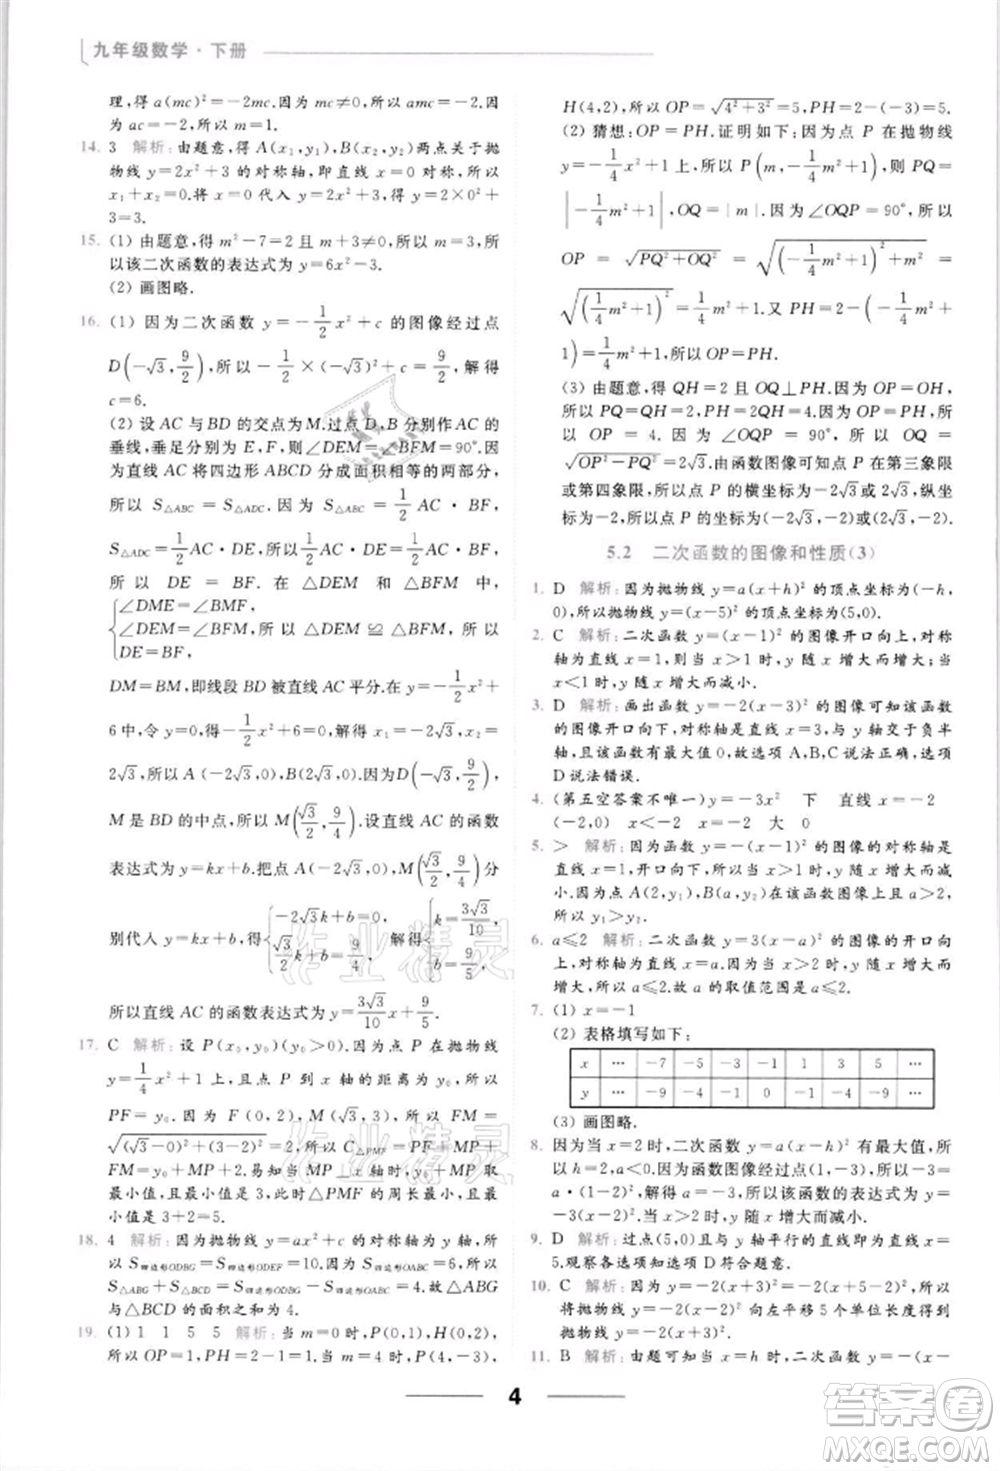 九年级数学·下册
理,得 a(mc)²=-2mc.因为 mc≠0,所以 amc=-2.因
为 ac=-2,所以 m=1.
14. 3 解析:由题意,得 A(x₁,y₁),B(x₂,y₂)两点关于抛
物线 y=2x²+3 的对称轴,即直线 x=0 对称,所以
x₁+x₂=0.将 x=0 代入 y=2x²+3,得 y=2×0²+
3=3.
15. (1) 由题意,得 m²-7=2 且 m+3≠0,所以 m=3,所
以该二次函数的表达式为 y=6x²-3.
(2) 画图略.
16. (1) 因为二次函数 y=-1/2x²+c 的图像经过点
D(-√3,9/2),所以 -1/2×(-√3)²+c=9/2,解得
c=6.
(2) 设 AC 与 BD 的交点为 M.过点 D、B 分别作 AC 的
垂线,垂足分别为 E,F,所以∠DEM=∠BFM=90°.因为
直线 AC 将四边形 ABCD 分成面积相等的两部分,
所以 S△ABC=S△ADC.因为 S△ABC=1/2AC·BF,
S△ADC=1/2AC·DE,所以 1/2AC·DE=1/2AC·BF,
所以 DE=BF.在 △DEM 和 △BFM 中,
{∠DME=∠BMF,
∠DEM=∠BFM,所以 △DEM≌△BFM,所以
DE=BF,
DM=BM,即线段 BD 被直线 AC 平分.在 y=-1/2x²+
6 中,令 y=0,得-1/2x²+6=0,解得 x₁=-2√3,x₂=
2√3,所以 A(-2√3,0),B(2√3,0).因为D(-√3,9/2),
M 是 BD 的中点,所以 M(√3/2,9/4).设直线 AC 的函数
表达式为 y=kx+b.把点 A(-2√3,0),M(√3/2,9/4)分
别代入 y=kx+b,得{-2√3k+b=0, √3/2k+b=9/4, 解得{k=3√3/10, b=9/5,
所以直线 AC 的函数表达式为 y=3√3/10x+9/5.
17. C 解析:设 P(x₀,y₀)(y₀>0).因为点 P 在抛物线
y=1/4x²+1 上,且点 P 到 x 轴的距离与 PF 相等,所以
PF=y₀.又因为 F(0,2),M(√3,3),所以 FM=
√((√3-0)²+(3-2)²)=2,所以 C△PFM=MP+PF+
FM=y₀+MP+2.易知当 MP⊥x 轴时,y₀+MP有
最小值,且最小值是 3,此时△PMF 的周长最小,且最
小值是 3+2=5.
18. 4 解析:因为抛物线 y=ax²+c 的对称轴为 y 轴,
所以 S四边形ODBG=S四边形ODEF=10.因为 S△ABC=6,所以
S△ABG+S△BCD=S四边形ODBG-S△ABC=4,故△ABG
与△BCD 的面积之和为 4.
19. (1) 1 1 5 5 解析:当 m=0 时,P(0,1),H(0,2),
所以 OP=1,PH=2-1=1.当 m=4 时,P(4,-3),
H(4,2),所以 OP=√(4²+3²)=5,PH=2-(-3)=5.
(2) 猜想:OP=PH.证明如下:因为点 P 在抛物线
y=-1/4x²+1 上,所以 P(m,-1/4m²+1),则 PQ=
|-1/4m²+1|,OQ=|m|.因为∠OQP=90°,所以
OP=√(PQ²+OQ²)=√((-1/4m²+1)²+m²)=
√((1/4m²+1)²)=1/4m²+1.又 PH=2-(-1/4m²+
1)=1/4m²+1,所以 OP=PH.
(3) 由题意,得 QH=2 且 OQ⊥PH.因为 OP=OH,
所以 PQ=QH=2,所以 PH=QH+PQ=4,所以
OP=PH=4.因为∠OQP=90°,所以 OQ=
√(OP²-PQ²)=2√3.由函数图像可知点 P 在第三象限
或第四象限,所以点 P 的横坐标为-2√3或2√3,纵坐
标为-2,所以点 P 的坐标为(-2√3,-2)或(2√3,-2).
5.2 二次函数的图像和性质(3)
1. D 解析:因为抛物线 y=a(x+h)² 的顶点坐标为(-h,
0),所以抛物线 y=(x-5)² 的顶点坐标为(5,0).
2. C 解析:二次函数 y=(x-1)² 的图像开口向上,对称
轴为直线 x=1,所以当 x>1 时,y 随 x 增大而增大;当
x<1 时,y 随 x 增大而减小.
3. D 解析:画出函数 y=-2(x-3)² 的图像可知该函数
的图像开口向下,对称轴为直线 x=3,与 y 轴交于负半
轴,且该函数有最大值 0,故选项 A、B、C说法正确,选项
D说法错误.
4. (第五空答案不唯一)y=-3x² 下 直线 x=-2
(-2,0) x<-2 x=-2 大 0
5. > 解析:因为二次函数 y=(x-1)² 的对称轴是
直线 x=1,且图像开口向上,所以当 x>1 时,y 随 x 增
大而增大.因为 A(2,y₁),B(a,y₂)在该函数图像上,且 a>2,
所以 y₁>y₂.
6. a≤2 解析:二次函数 y=3(x-a)² 的图像的开口向
上,对称轴为直线 x=a.因为当 x>2 时,y 随 x 增大而
增大,所以 a≤2,即 a 的取值范围是 a≤2.
7. (1) x=-1
(2) 表格填写如下:
x … -7 -5 -3 -1 1 3 5 …
y … -9 -4 -1 0 -1 -4 -9 …
(3) 画图略.
8. 因为当 x=2 时,二次函数 y=a(x-h)² 有最大值,所
以 h=2,a<0.因为函数图像经过点(1,-3),所以-3=
a·(1-2)²,解得 a=-3,所以该函数的表达式为 y=
-3(x-2)²,所以当 x>2 时,y 随 x 增大而减小.
9. D 解析:过点(5,0)且与 y 轴平行的直线为直线 x=
5.观察各选项知选项 D 符合题意.
10. C 解析:因为 y=-2(x+3)²=-2(x-2+5)²,所以
将抛物线 y=-2(x-2)² 向左平移 5 个单位长度得到
y=-2(x+3)².
11. B 解析:由题可知当 x=h 时,y=-(x-
4
作业精灵
作业精灵
答案圈
MXQE.COM